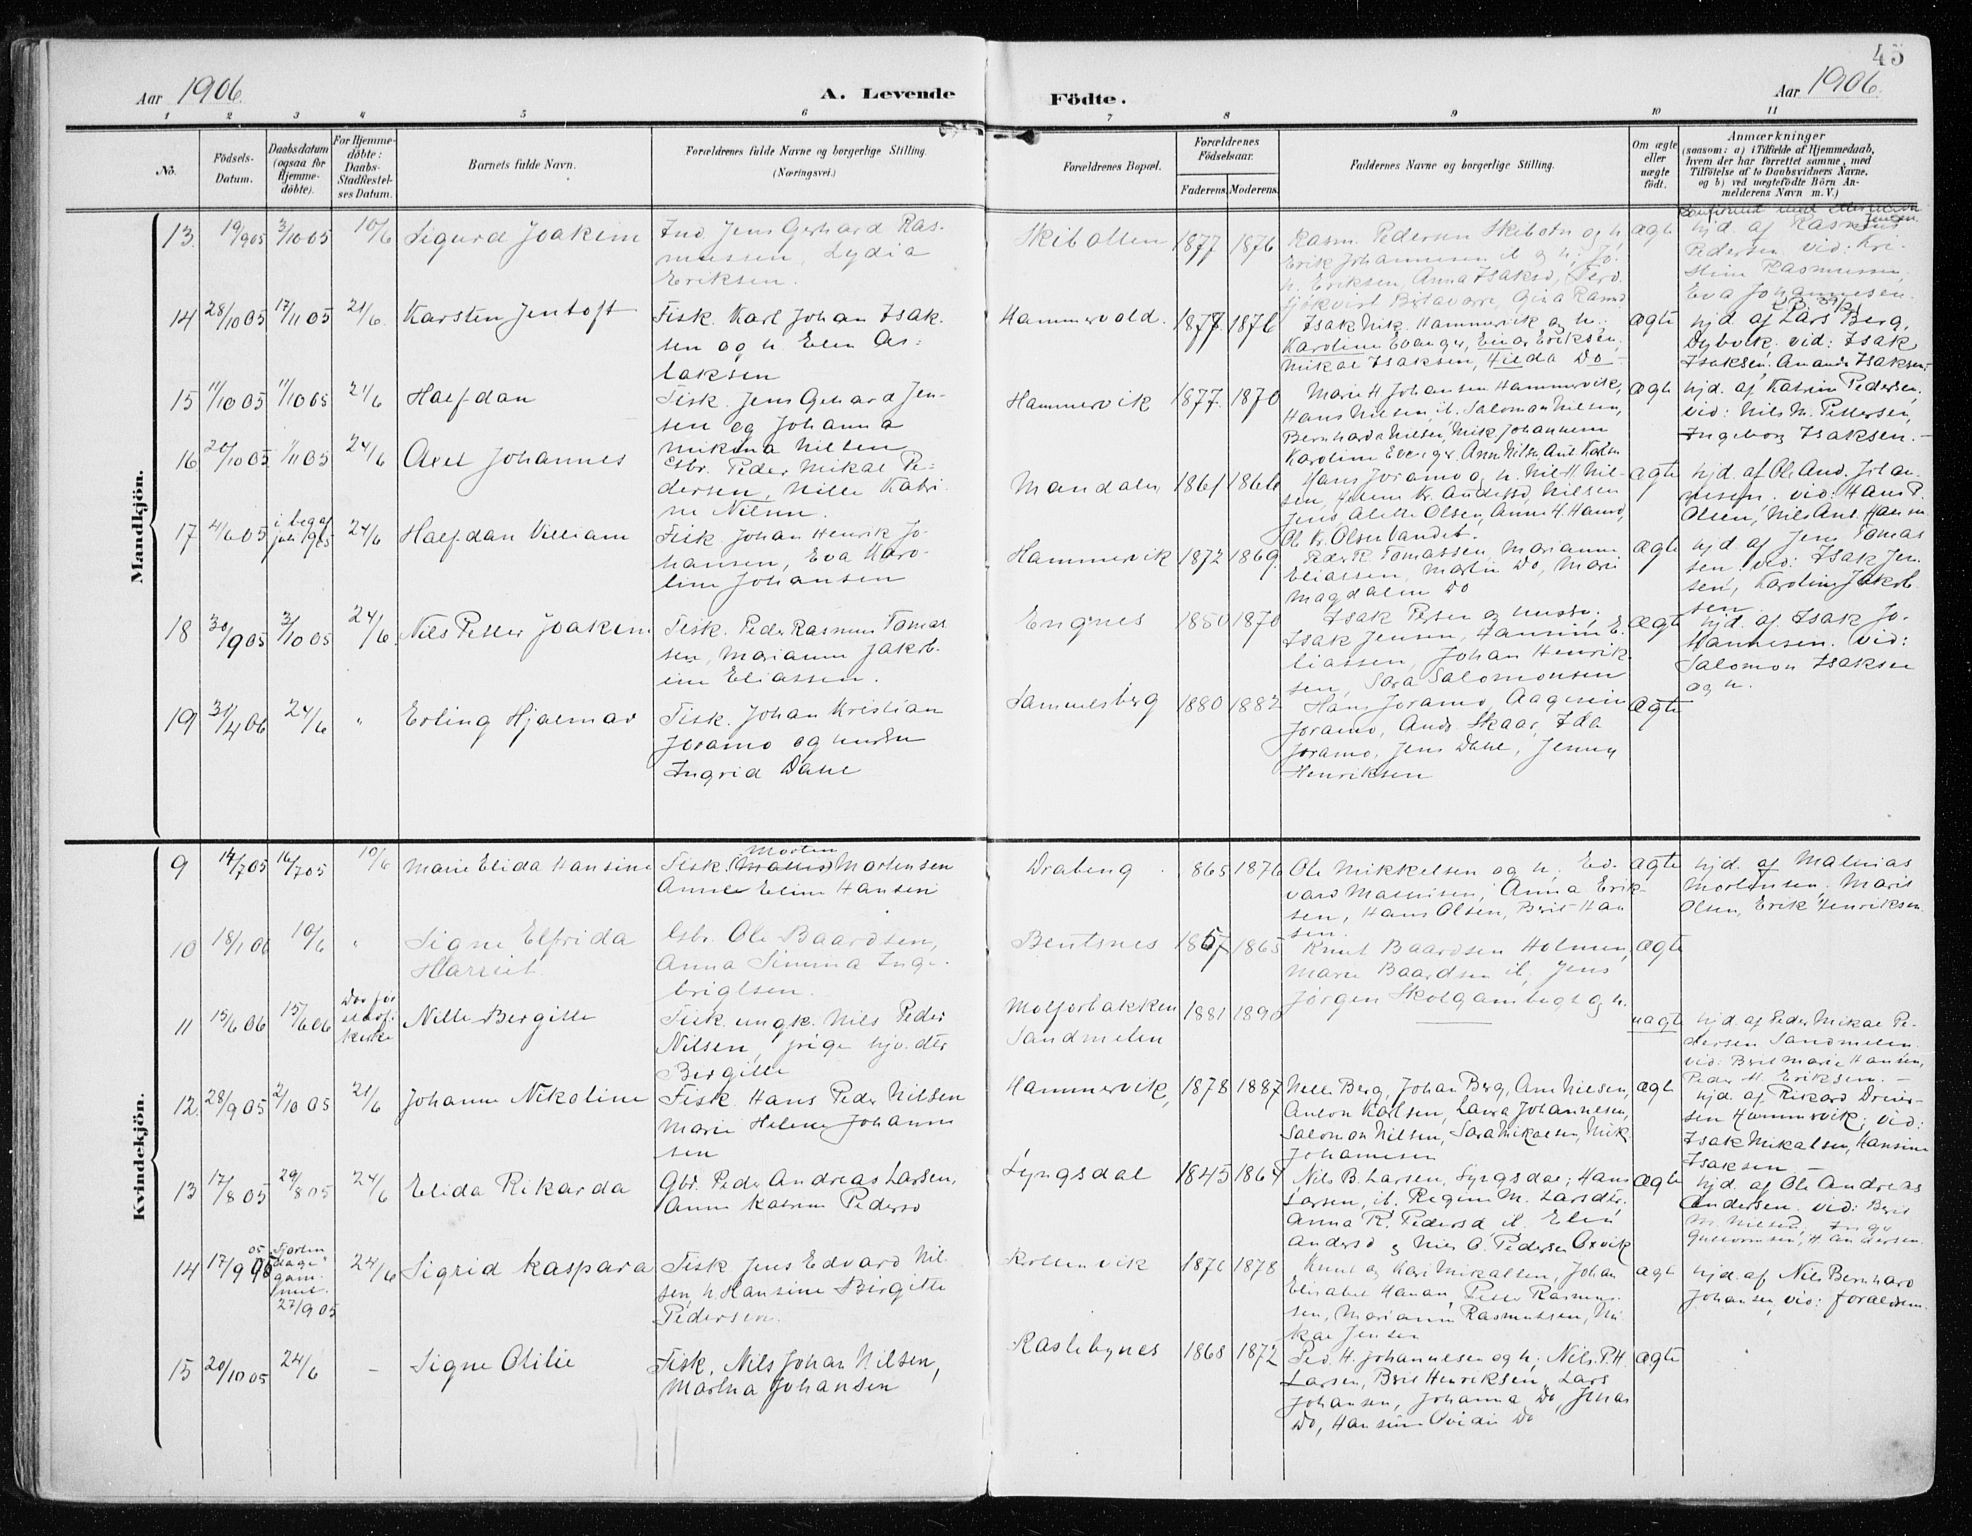 45
Aar 1906.
A. Levende
Födte.
Aar 1906.
1 2 3 4 5 6 7 8 9 10 11
No.
Födsels-Datum.
Daabsdatum (ogsaa för Hjemmedöbte).
For Hjemmedöbte: Daabs-Stadfæstelses Datum.
Barnets fulde Navn.
Forældrenes fulde Navne og borgerlige Stilling.
(Næringsvei.)
Forældrenes Bopæl.
Forældrenes Födselsaar.
Faderens. Moderens.
Faddernes Navne og borgerlige Stilling.
Om ægte eller uægte født.
Anmærkninger
(saasom: a) i Tilfælde af Hjemmedaab,
hvem der har forrettet samme, med
Tilføielse af to Daabsvidners Navne.
og b) ved uægtefødte Börn An-
melderens Navn m. V.)
Mandkjön.
13. 19/9 05 3/10 05 10/6 Sigurd Joakim
Ind Jens Gerhard Ras-
mussen, Lydia
Eriksen.
Skibotten 1877 1876
Rasm. Pedersen Skibotn og h
Erik Johannesen il og h; Jo
h. Eriksen, Anna Isaksd,
ægte
hjd. af Rasmus
Pedersen vid: Kri-
stine Rasmussen,
Eva Johannesen.
14 28/10 05 17/11 05 21/6. Karsten Jentoft
Fisk. Karl Johan Isak-
sen og h. Elen As-
laksen
Hammervold. 1877. 1876
Isak Mik. Hammervik og h.;
Karoline Evanger, Einar Eriksen,
Mikal Isaksen, Hilda Do-
ægte
hjd. af Lars Berg,
Dybvik. vid: Isak
Isaksen, Amanda Isaksen.-
15 11/10 05 11/10 05 21/6 Halfdan
Fisk. Jens Gerhard Jen-
sen og Johanna
Mikina Nilsen
Hammervik 1877. 1870
Marie H Johansen Hammervik,
Hans Nilsen, il. Salomon Nilsen,
Bernharda Nilsen, Mik Johannesen
Karoline Evanger,
ægte
hjd. af Katrine Pedersen,
vid: Nils M. Pettersen,
Ingeborg Isaksen.-
16 20/10 05 1/11 05 24/6 Axel Johannes
Gbr. Peder Mikal Pe-
dersen, Nille Katri-
ne Nilsen.
Mandalen 1861 1866
Hans Joramo og h. Nil H Nil-
sen,
Jens Alette Olsen, Anne H. Hansd,
Ol Kr. Olsen Vandet.
ægte
hjd. af Ole And. Johan-
nesen. vid: Hans P.
Olsen, Nils Ant Hansen
17 4/6 05 i beg af juli 1905 24/6 Halfdan William
Fisk. Johan Henrik Jo-
hansen, Eva Karo-
line Johansen
Hammervik 1872 1869.
Peder R. Tomassen, Marianne
Eliassen, Martin Do, Marie
Magdalene Do
ægte
hjd. af Jens Tomas
sen vid: Isak Jen-
sen, Karoline Jakob
sen
18 30/9 05 3/10 05 24/6. Nils Petter Joakim
Fisk. Peder Rasmus Tomas
sen, Marianne Jakob-
ine Eliassen.
Engnes 1850 1870
Isak Peter og hustru,
Isak Jensen, Hansine E-
liassen, Johan Henrik-
sen, Sara Salomonsen
ægte
hjd. af Isak Jo-
hannesen. vid:
Salomon Isaksen
og h.
19 30/4 06 24/6 " Erling Hjalmar
Fisk. Johan Kristian
Joramo og hustru
Ingrid Dahl
Sammesberg 1880 1882
Hans Joramo, Aagesine
Joramo, Andr Skaar, Ida
Joramo, Jens Dahl, Jenny
Henriksen
ægte
Kvindekjön.
9 14/7 05 16/7 05 10/6 Marie Elida Hansine
Morten
Fisk. (Mattis) Mortensen
Anne Eline Hansen
Draberg. 865 1876
Ole Mikkelsen og h; Ed-
vard Mathisen, Anna Erik-
sen, Hans Olsen, Berit Han
sen.
ægte
hjd. af Mathias
Mortensen, Marit
Olsen, Erik Henriksen
10 18/1 06 10/6 " Signe Elfrida
Harriet.
Gbr. Ole Baardsen,
Anna Simma Inge-
brigtsen.
Bentsnes 1867 1865
Knut Baardsen Holmen,
Marie Baardsen il, Jens
Jørgen Skolgambugt og h.
ægte
11 13/6 06 15/6 06 Nille Bergitte
Fisk. ungk. Nils Peder
Nilsen, pige hjv. dtr
Bergitte
Molforbakken 1881 1890
Sandmelen
uægte
hjd. af Peder Mikal Pe-
dersen Sandmelen.
vid: Berit Marie Hansen,
Peder H. Eriksen.-
12. 28/9 05 2/10 05 21/6 Johanne Nikoline
Fisk Hans Peder Nilsen
Marie Helene Johanne
sen
Hammervik, 1878 1887
Nelle Berg, Johan Berg, Ane Nilsen,
Anton Karlsen, Laura Johannesen,
Salomon Nilsen, Sara Mikalsen, Mik
Johannesen
ægte
hjd. af Rikard Dreier-
sen Hammervik; vid:
Isak Mikalsen, Hansine
Isaksen -
13 17/8 05 29/8 05 24/6 Elida Rikarda
Gbr. Peder Andreas Larsen,
Anne Katrine Pedersd
Lyngsdal 1845 1864
Nils B. Larsen, Lyngsdal; Hans
Larsen, il. Regine M. Larsdtr.
Anna R. Pedersd il. Elen
Andersd og Nils O. Pedersen Oxvik
ægte
hjd. af Ole Andreas
Andersen. vid: Berit
M. Nilsen, Inga
14 17/9 05 Fjorten dage gam- mel. 27/9 05 24/6 Sigrid Kaspara
Fisk Jens Edvard Nil-
sen, h Hansine Birgitte
Pedersen.
Kollenvik 1876 1878
Knut og Kari Mikalsen, Johan
Elisabet Hansen, Peder Rasmus-
sen, Marianne Rasmussen, Mi
kal Jensen
ægte
hjd. af Nils Bernhard
Johansen, vid: forældrene.
15 20/10 05 24/6 - Signe Otilie
Fisk, Nils Johan Nilsen,
Martha Johansen
Rastebynes 1868 1872
Ped. H. Johannesen og h; Nils P.H.
Larsen, Berit Henriksen, Lars
Johansen, Johanna Do, Jonas
Do, Hansine Do
ægte